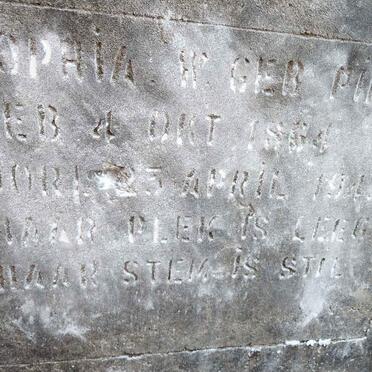 OPHIA W. GEB PI
EB 4 OKT 1864
OORL 23 APRIL 194
HAAR PLEK IS LEEG
HAAR STEM IS STIL